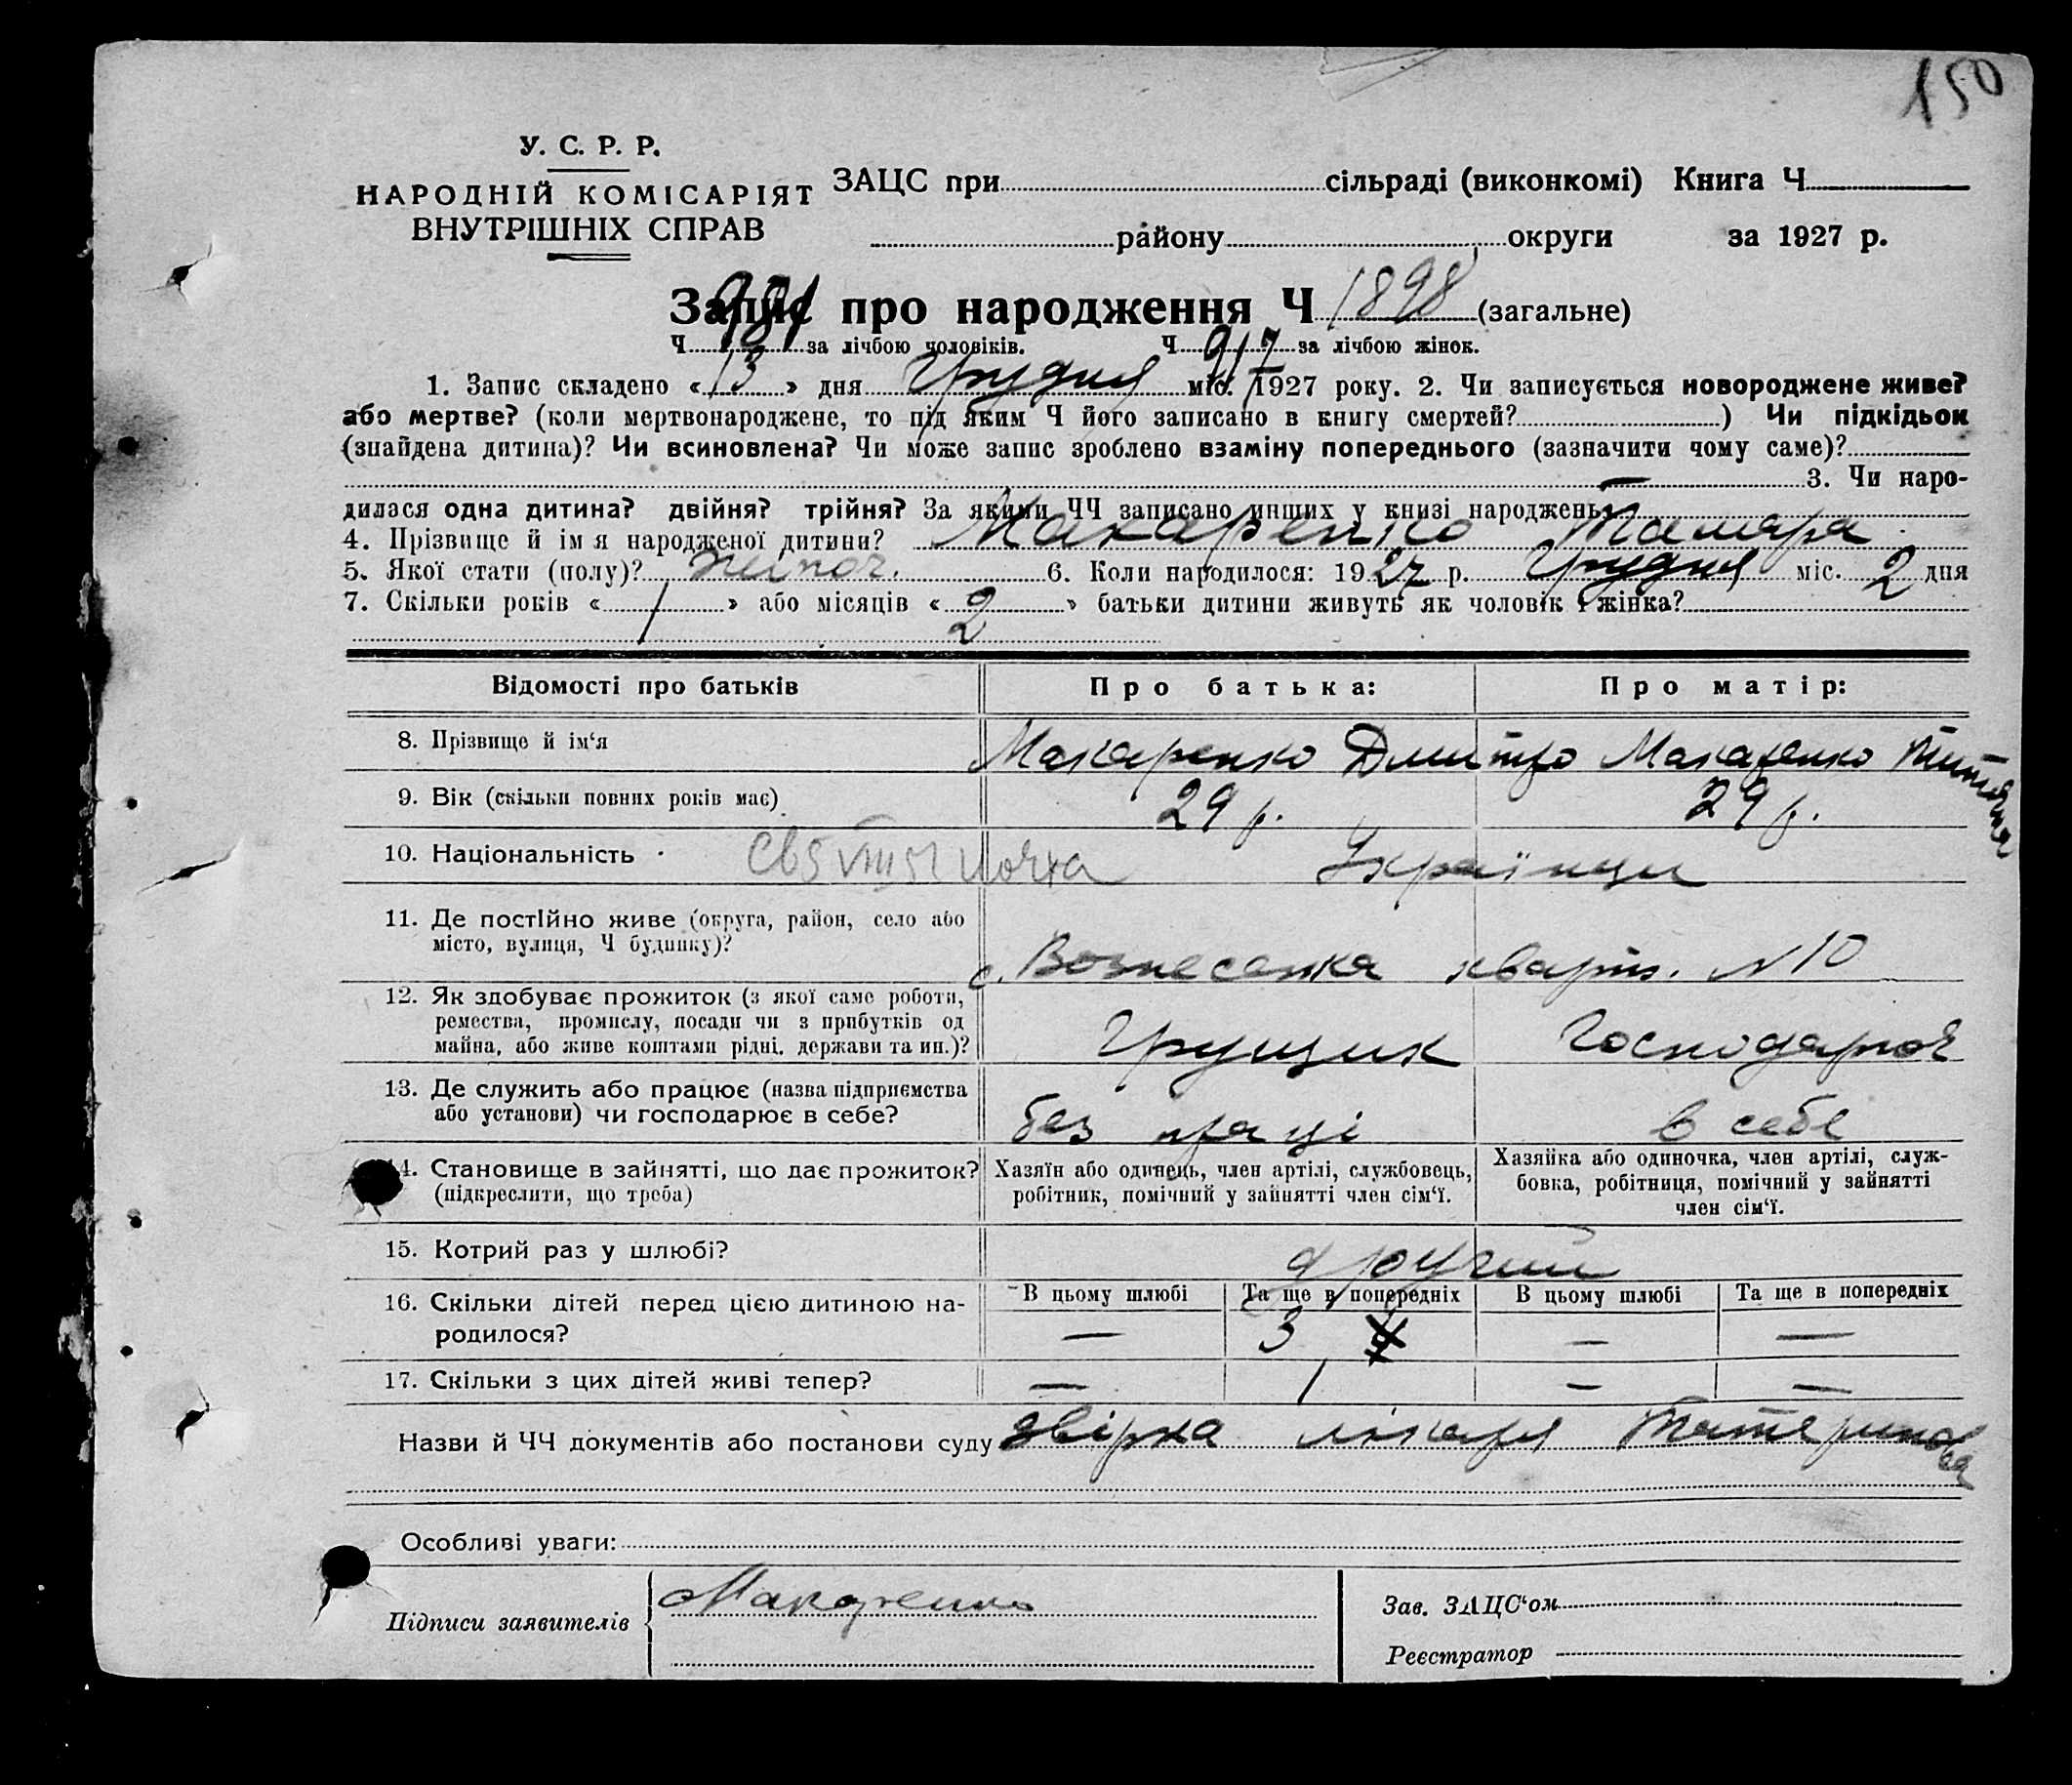 150
У. С. Р. Р.
НАРОДНІЙ КОМІСАРІЯТ
ВНУТРІШНІХ СПРАВ
ЗАЦС при сільраді (виконкомі) Книга Ч
району округи за 1927 р.
Запис про народження Ч 1898 (загальне)
Ч 981 за лічбою чоловіків. Ч 917 за лічбою жінок.
1. Запис складено « 13 » дня Грудня міс. 1927 року. 2. Чи записується новороджене живе?
або мертве? (коли мертвонароджене, то під яким Ч його записано в книгу смертей? ) Чи підкідьок
(знайдена дитина)? Чи всиновлена? Чи може запис зроблено взаміну попереднього (зазначити чому саме)?
— 3. Чи наро-
дилася одна дитина? двійня? трійня? За якими ЧЧ записано инших у книзі народжень
4. Прізвище й ім я народженої дитини? Макаренко Тамара
5. Якої стати (полу)? жіноч. 6. Коли народилося: 1927 р. Грудня міс. 2 дня
7. Скільки років « 1 » або місяців « 2 » батьки дитини живуть як чоловік і жінка?
Відомості про батьків Про батька: Про матір:
8. Прізвище й ім‘я Макаренко Дмитро Макаренко
9. Вік (скільки повних років має) 29 р. 29 р.
10. Національність Українци
11. Де постійно живе (округа, район, село або
місто, вулиця, Ч будинку)?
с. Вознесенка кварт. N 10
12. Як здобуває прожиток (з якої саме роботи,
ремества, промислу, посади чи з прибутків од
майна, або живе коштами рідні, держави та ин.)?
Грущик Господарюэ
13. Де служить або працює (назва підприємства
або установи) чи господарює в себе?
без праці в себе
14. Становище в зайнятті, що дає прожиток?
(підкреслити, що треба)
Хазяїн або одинець, член артілі, службовець,
робітник, помічний у зайнятті член сім‘ї.
Хазяйка або одиночка, член артілі, служ-
бовка, робітниця, помічний у зайнятті
член сім‘ї.
15. Котрий раз у шлюбі? другий
16. Скільки дітей перед цією дитиною на-
родилося?
В цьому шлюбі Та ще в попередніх В цьому шлюбі Та ще в попередніх
— 3 — —
17. Скільки з цих дітей живі тепер? — 1 — —
Назви й ЧЧ документів або постанови суду звірка лікаря
Особливі уваги:
Підписи заявителів Макаренко
Зав. ЗАЦС‘ом
Реєстратор